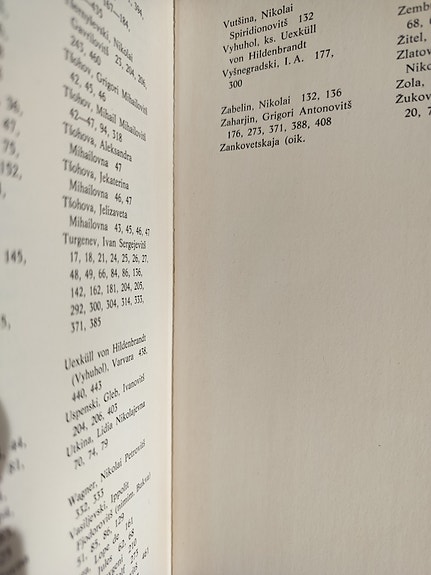 36,
67,
75,
152,
145,
5,
44,
81,
394,
162—184,
Tšernyševski, Nikolai
Gavrilovitš 23, 204, 206,
243, 460
Tšohov, Grigori Mihailovitš
42, 45, 46
Tšohov, Mihail Mihailovitš
42—47, 94, 318
Tšohova, Aleksandra
Mihailovna 47
Tšohova, Jekaterina
Mihailovna 46, 47
Tšohova, Jelizaveta
Mihailovna 43, 45, 46, 47
Turgenev, Ivan Sergejevitš
17, 18, 21, 24, 25, 26, 27,
48, 49, 66, 84, 86, 136,
142, 162, 181, 204, 205,
292, 300, 304, 314, 333,
371, 385
Uexküll von Hildenbrandt
(Vyhuhol), Varvara 438,
440, 443
Uspenski, Gleb, Ivanovitš
204, 206, 403
Utkina, Lidia Nikolajevna
70, 74, 79
Wagner, Nikolai Petrovitš
332, 333
Vasiljevski, Ippolit
Fjodorovitš (nimim. Bukva)
51, 85, 86, 129
Lope de 161
Jules 62, 68
210
Vutšina, Nikolai
Spiridionovitš 132
Vyhuhol, ks. Uexküll
von Hildenbrandt
Vyšnegradski, I. A. 177,
300
Zabelin, Nikolai 132, 136
Zaharjin, Grigori Antonovitš
176, 273, 371, 388, 408
Zankovetskaja (oik.
Zemb
68,
Žitel,
Zlatov
Niko
Zola,
Žukov
20, 7